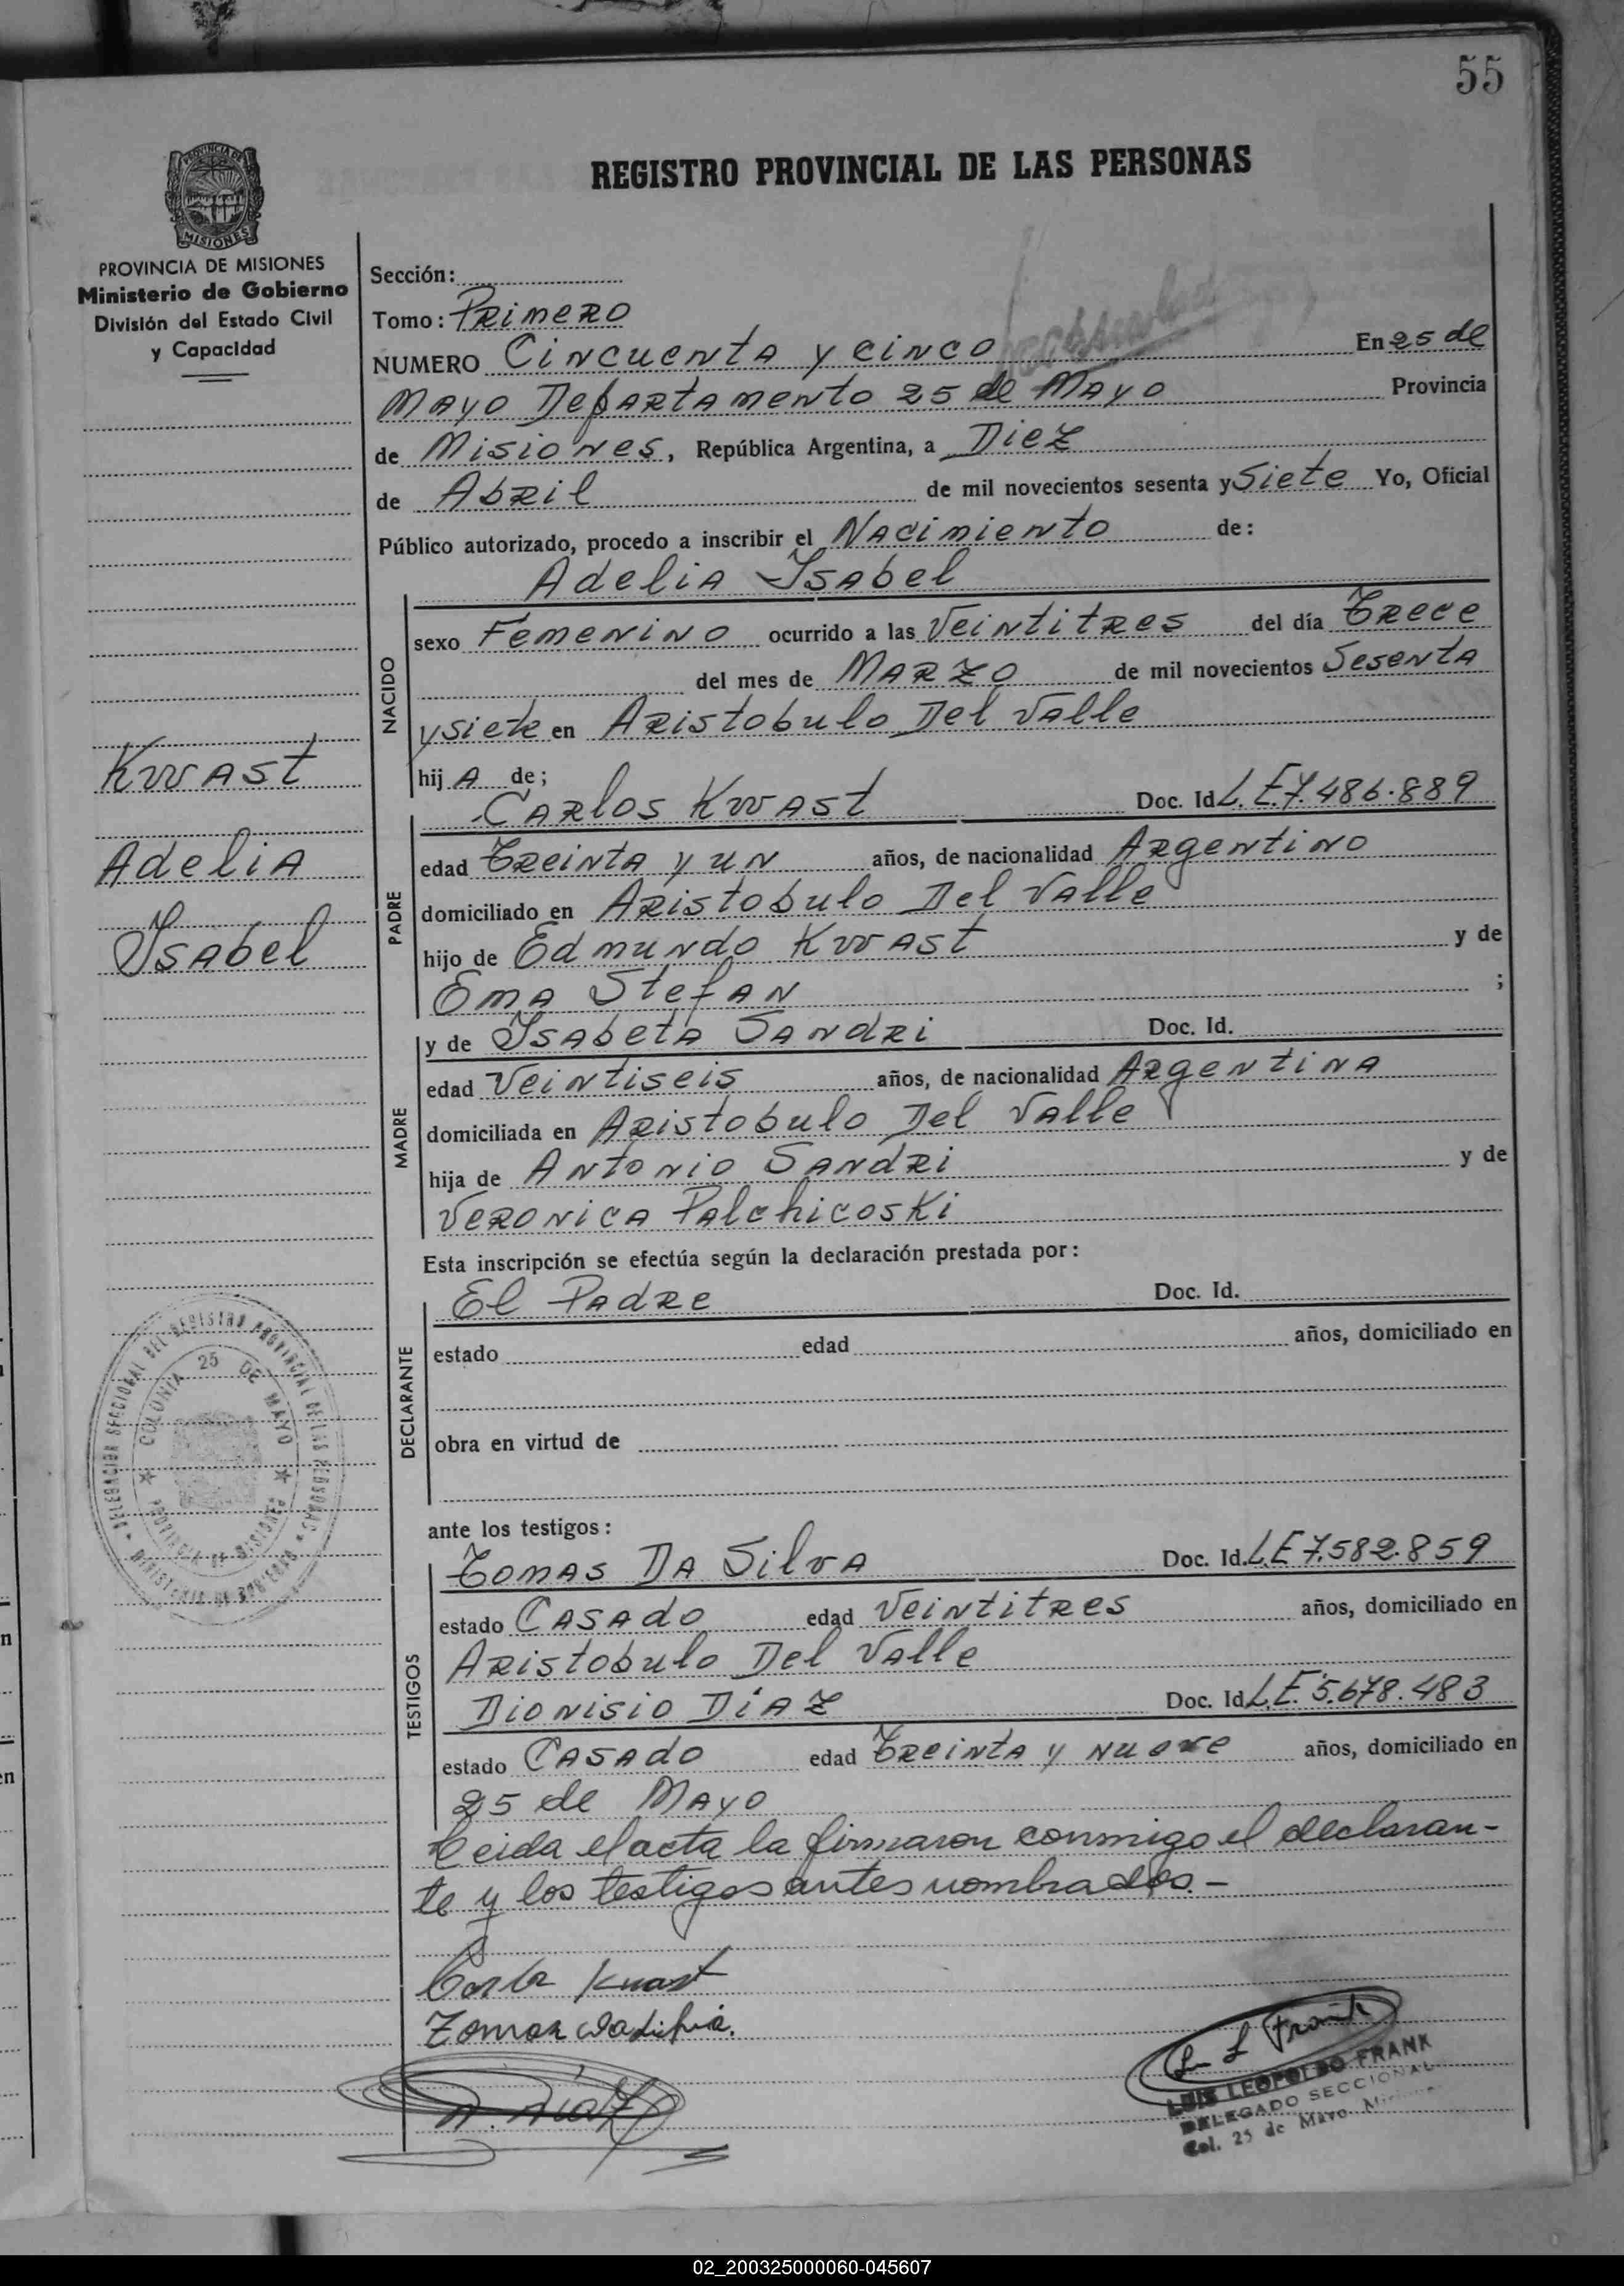 55
REGISTRO PROVINCIAL DE LAS PERSONAS
PROVINCIA DE
MISIONES
PROVINCIA DE MISIONES
Ministerio de Gobierno
División del Estado Civil
y Capacidad
Kwast
Adelia
Isabel
Sección:
Tomo: Primero
NUMERO Cincuenta y cinco En 25 de
Mayo Departamento 25 de Mayo Provincia
de Misiones, República Argentina, a Diez
de Abril de mil novecientos sesenta y Siete Yo, Oficial
Público autorizado, procedo a inscribir el Nacimiento de:
Adelia Isabel
NACIDO
sexo Femenino ocurrido a las Veintitres del día Trece
del mes de Marzo de mil novecientos Sesenta
y siete en Aristobulo Del Valle
hij A de;
Carlos Kwast Doc. Id. L.E. 7.486.889
PADRE
edad Treinta y un años, de nacionalidad Argentino
domiciliado en Aristobulo Del Valle
hijo de Edmundo Kwast y de
Ema Stefan ;
y de Isabeta Sandri Doc. Id.
MADRE
edad Veintiseis años, de nacionalidad Argentina
domiciliada en Aristobulo Del Valle
hija de Antonio Sandri y de
Veronica Palchicoski
Esta inscripción se efectúa según la declaración prestada por:
El Padre Doc. Id.
DECLARANTE
estado edad años, domiciliado en
obra en virtud de
DELEGACION SECCIONAL DEL REGISTRO PROVINCIAL DE LAS PERSONAS
COLONIA 25 DE MAYO
PROVINCIA DE MISIONES
MINISTERIO DE GOBIERNO
ante los testigos:
Tomas Da Silva Doc. Id. L.E 7.582.859
TESTIGOS
estado Casado edad Veintitres años, domiciliado en
Aristobulo Del Valle
Dionisio Diaz Doc. Id L.E. 5.678.483
estado Casado edad Treinta y nueve años, domiciliado en
25 de Mayo
Leida el acta la firmaron conmigo el declaran-
te y los testigos antes nombrados.-
Kuast
D. Diaz
L L Frank
LUIS LEOPOLDO FRANK
DELEGADO SECCIONAL
Col. 25 de Mayo
02_200325000060-045607